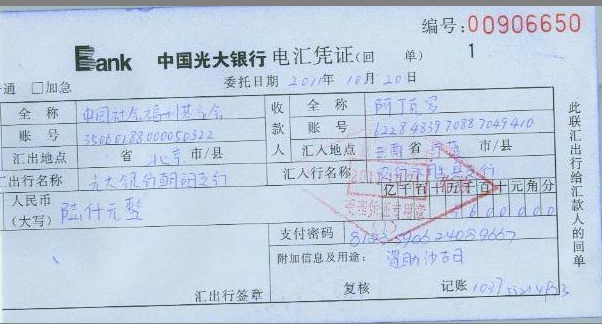 编号:00906650
Bank 中国光大银行 电汇凭证(回 单) 1
通 □加急 委托日期 2011年10月20日
全 称 中国社会福利基金会 收款人 全 称
账 号 35060188000050322 账 号 6228483970887049410
汇出地点 省 北京 市/县 汇入地点 云南 省 市/县
汇出行名称 光大银行朝阳支行 汇入行名称
人民币(大写) 陆仟元整 亿千百十万千百十元角分
受理凭证专用章
600000
支付密码
附加信息及用途: 资助沙吉日
汇出行签章 复核 记账
此联汇出行给汇款人的回单